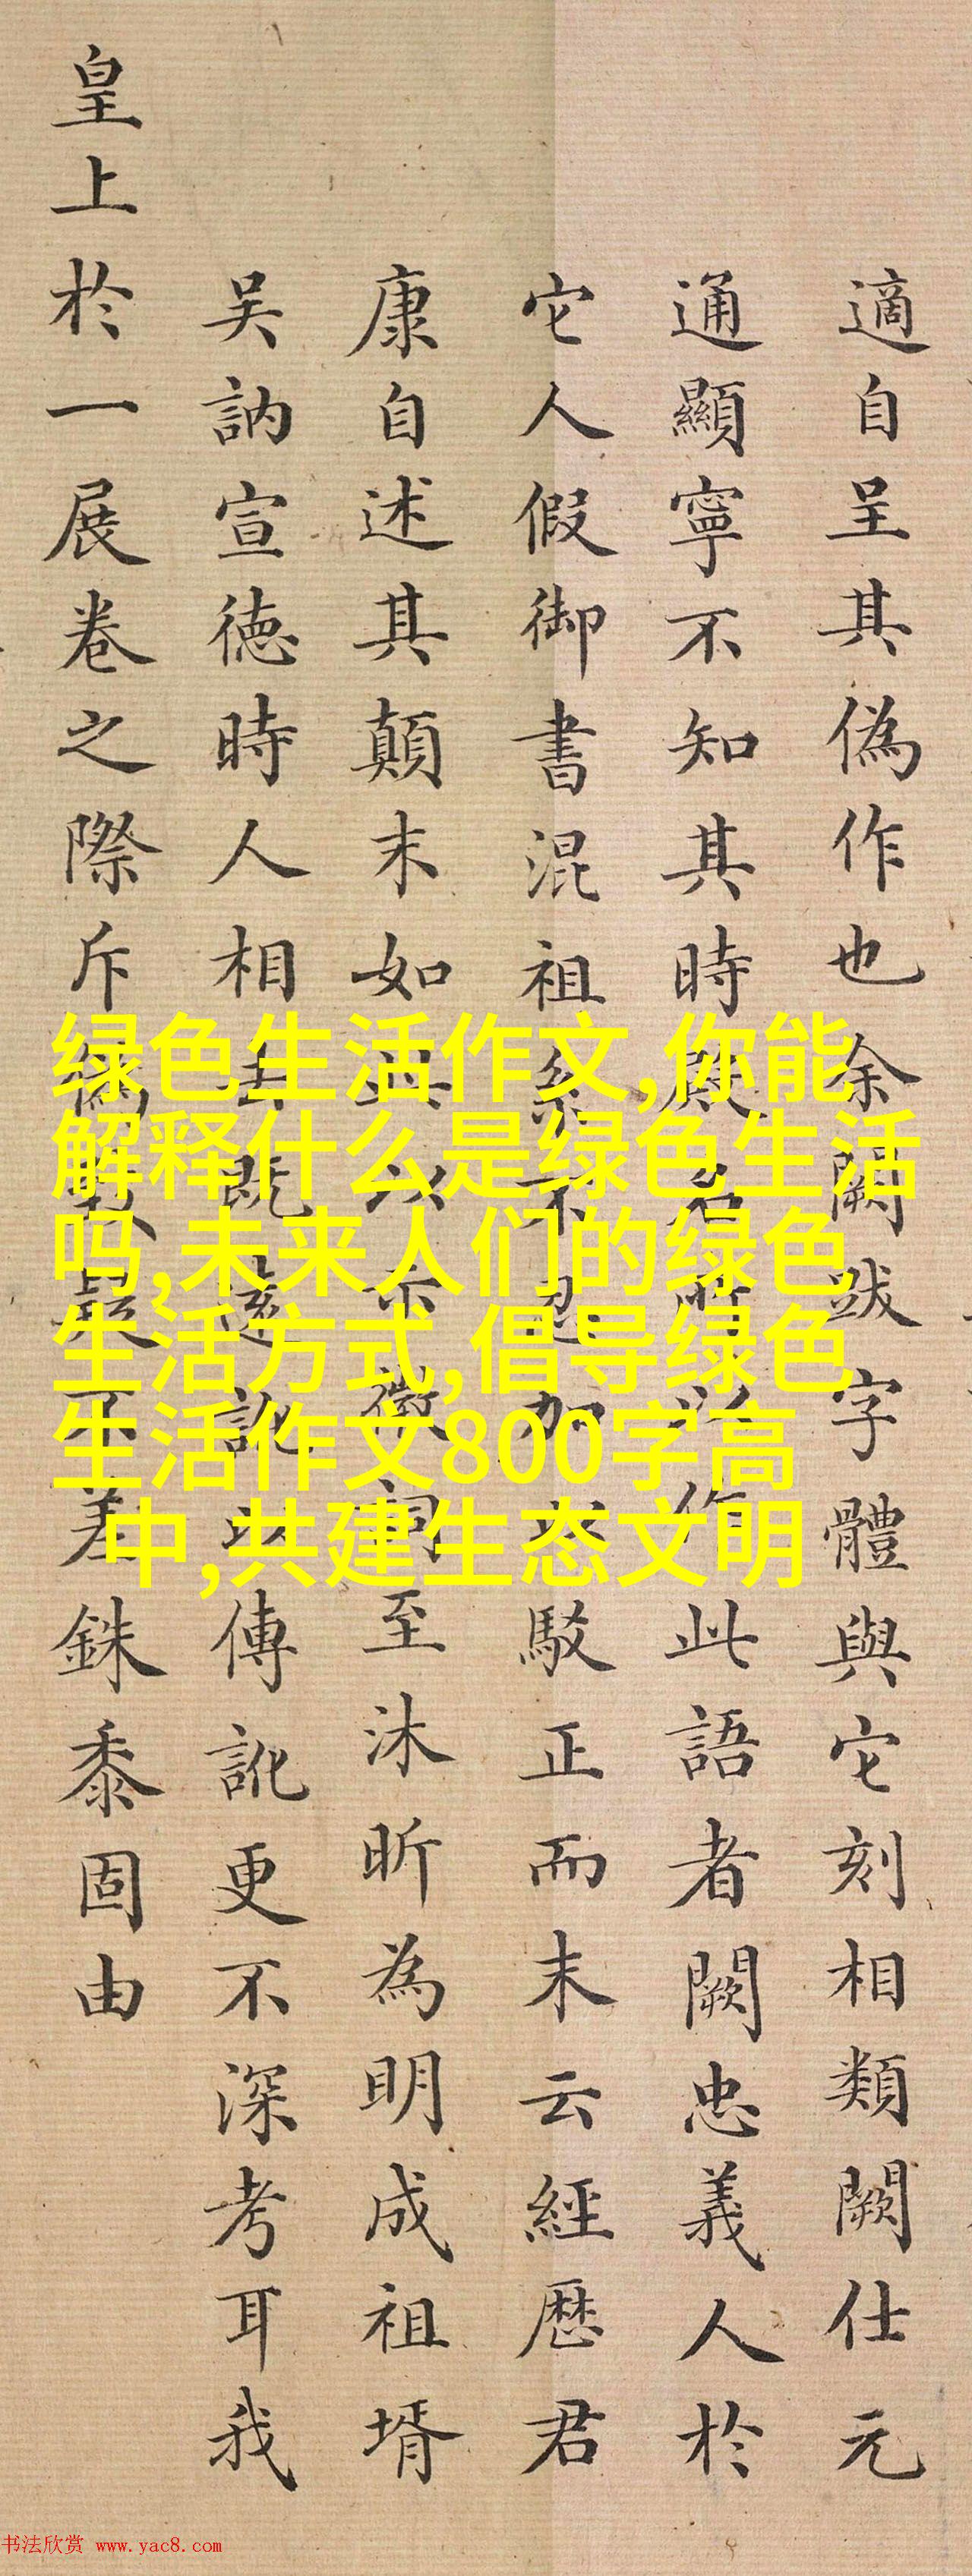 適自呈其偽作也余闕跋字體與它刻相類闕仕元
通顯寧不知其時作此語者闕忠義人於
它人假御書混祖系不忍加駁正而末云經厯君
康自述其顛末如此以示徵詞至沐昕為明成祖壻
吳訥宣徳時人相去既遠訛以傳訛更不深考耳我
皇上於一展卷之際斥偽疑不差銖黍固由
绿色生活作文,你能
解释什么是绿色生活
吗,未来人们的绿色
生活方式,倡导绿色
生活作文800字高
中,共建生态文明
书法欣赏 www.yac8.com